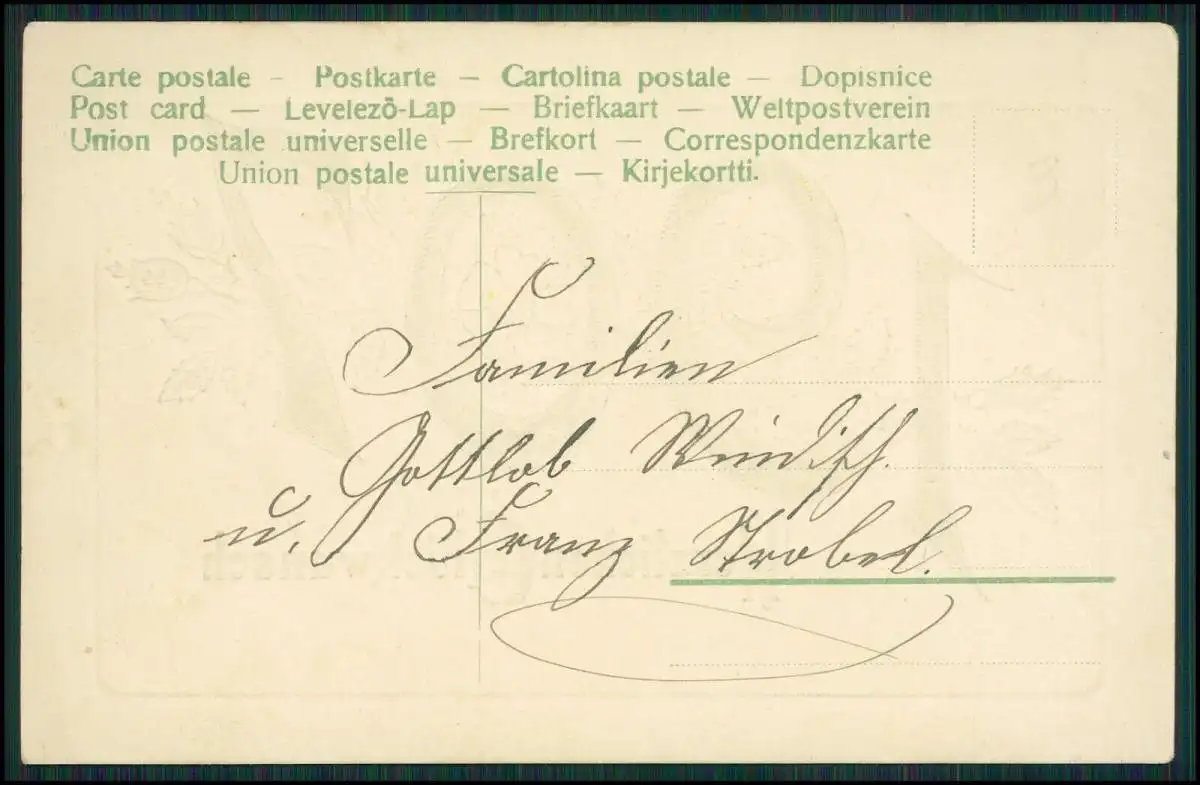 Carte postale – Postkarte – Cartolina postale – Dopisnice
Post card — Levelezō-Lap — Briefkaart — Weltpostverein
Union postale universelle — Brefkort — Correspondenzkarte
Union postale universale — Kirjekortti.
Familien
Gottlob Windisch.
u. Franz Strobel.